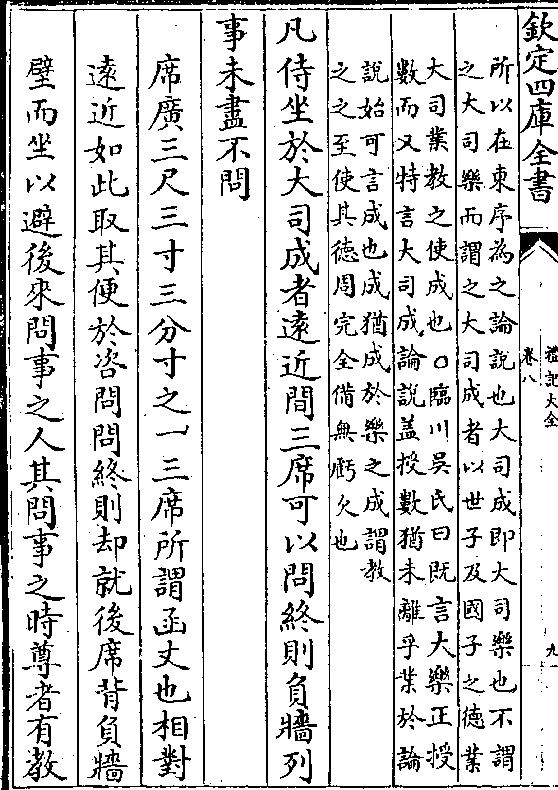 欽定四庫全書
禮記大全
卷八
九
所以在東序為之論說也大司成即大司樂也不謂
之大司樂而謂之大司成者以世子及國子之徳業
大司業教之使成也○臨川吳氏曰既言大樂正授
數而又特言大司成論說盖授數猶未離乎業於論
說始可言成也成猶成於樂之成謂教
之之至使其德周完全備無虧欠也
凡侍坐於大司成者遠近間三席可以問終則負牆列
事未盡不問
席廣三尺三寸三分寸之一三席所謂函丈也相對
遠近如此取其便於咨問問終則却就後席背負牆
壁而坐以避後來問事之人其問事之時尊者有教